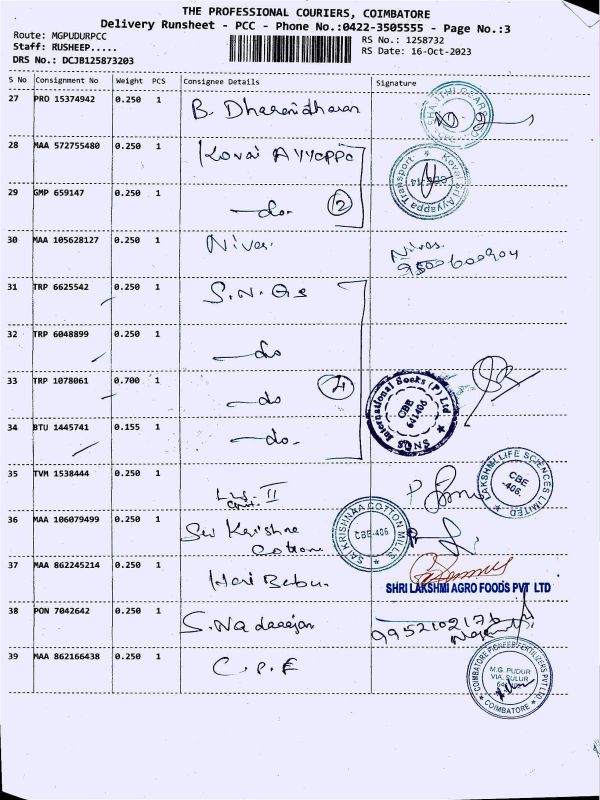 THE PROFESSIONAL COURIERS, COIMBATORE
Delivery Runsheet - PCC - Phone No.:0422-3505555 - Page No.:3
Route: MGPUDURPCC
RS No.: 1258732
Staff: RUSHEEP.....
RS Date: 16-Oct-2023
DRS No.: DCJB125873203
S No Consignment No Weight PCS Consignee Details Signature
27 PRO 15374942 0.250 1 B. Dharanidharan
28 MAA 572755480 0.250 1 Kovai Ayyappa
29 GMP 659147 0.250 1 —do. 2
30 MAA 105628127 0.250 1 Nivas. Nivas
31 TRP 6625542 0.250 1 S.N.QS
32 TRP 6048899 0.250 1 —do
33 TRP 1078061 0.700 1 —do 4
International Socks (P) Ltd
CBE
641406
SNQS
34 BTU 1445741 0.155 1 —do.
35 TVM 1538444 0.250 1 II
LAKSHMI LIFE SCIENCES LIMITED
CBE
-406.
36 MAA 106079499 0.250 1 Sri Krishna
Cottons
SAI KRISHNAA COTTON MILLS
CBE-406
37 MAA 862245214 0.250 1 Hari Babu
SHRI LAKSHMI AGRO FOODS PVT LTD
38 PON 7042642 0.250 1 S. Nadaraajan 9952102176
39 MAA 862166438 0.250 1 C.P.F
COIMBATORE PIONEER FERTILIZERS PVT LTD
M.G. PUDUR
VIA. SULUR
COIMBATORE